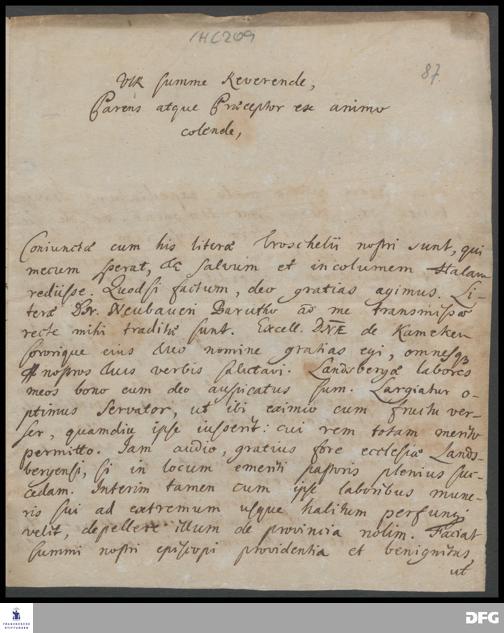 1HC209
87
Vir summe Reverende,
Parens atque Præceptor ex animo
colende,
Coniunctæ cum his literæ Croschelii nostri sunt, qui
mecum sperat, Te salvum et incolumem Halam
rediisse. Quod si factum, deo gratias agimus. Li-
teræ Neubaueri Barutho ad me transmissæ
recte mihi traditæ sunt. Excell. de Kameken
sororique eius duo nomine gratias egi, omnesq3
nostros duis verbis salutavi. Landsbergæ labores
meos bono cum deo auspicatus sum. Largiatur o-
ptimus Servator, ut ibi eximio cum fructu ver-
ser, quamdiu ipse iusserit: cui rem totam merito
permitto. Iam audio, gratius fore ecclesiæ Lands-
bergensi, si in locum emeriti pastoris plenius suc-
cedam. Interim tamen cum ipse laboribus mune-
ris sui ad extremum usque halitum perfungi
velit, depellere illum de provincia nolim. Faciat
summi nostri episcopi providentia et benignitas
ut
FRANCKESCHE
STIFTUNGEN
DFG